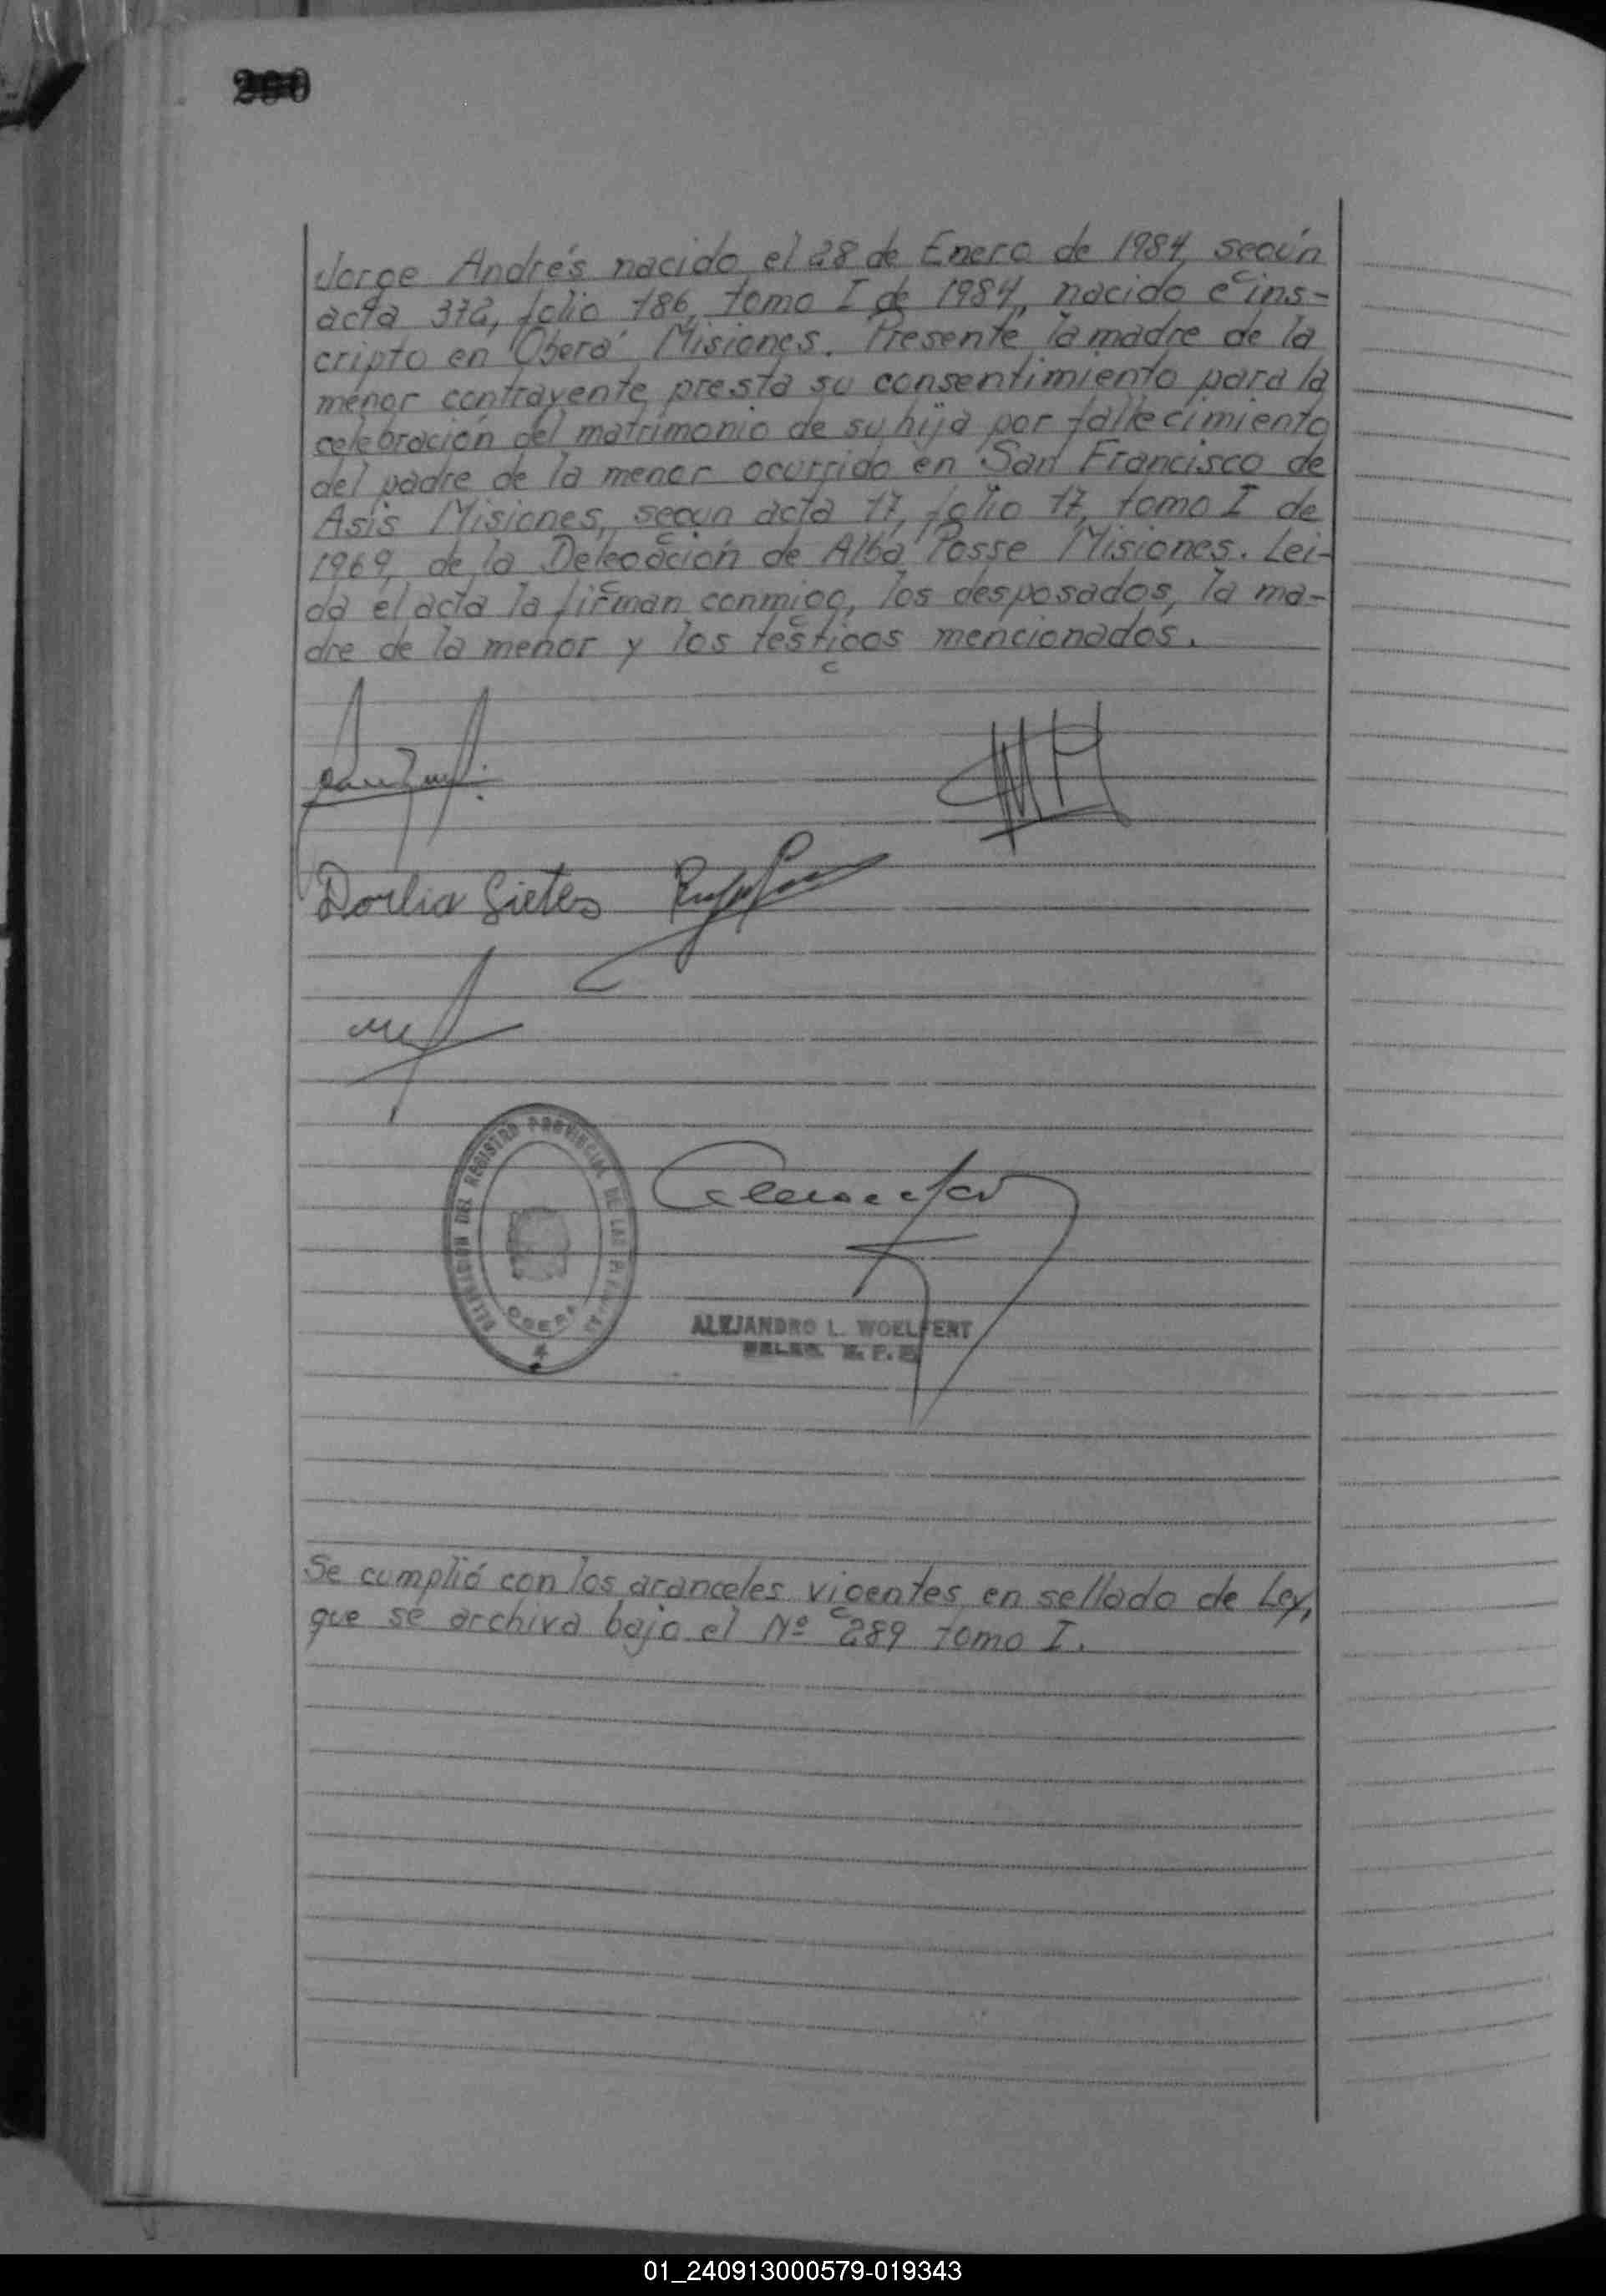 290
Jorge Andrés nacido el 28 de Enero de 1984, según
acta 372, folio 186, tomo I de 1984, nacido e ins-
cripto en Oberá Misiones. Presente la madre de la
menor contrayente presta su consentimiento para la
celebración del matrimonio de su hija por fallecimiento
del padre de la menor ocurrido en San Francisco de
Asís Misiones, según acta 17, folio 17, tomo I de
1969, de la Delegación de Alba Posse Misiones. Lei-
da el acta la firman conmigo, los desposados, la ma-
dre de la menor y los testigos mencionados.
Dorlia
DEL REGISTRO PROVINCIAL DE LAS PERSONAS
OBERA
ALEJANDRO L. WOELFERT
Se cumplió con los aranceles vigentes en sellado de Ley,
que se archiva bajo el Nº 289 tomo I.
01_240913000579-019343